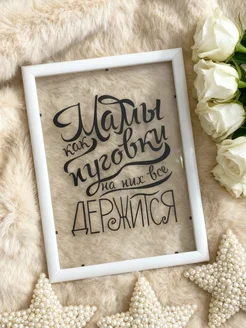 Мамы
как
пуговки
на них все
ДЕРЖИТСЯ